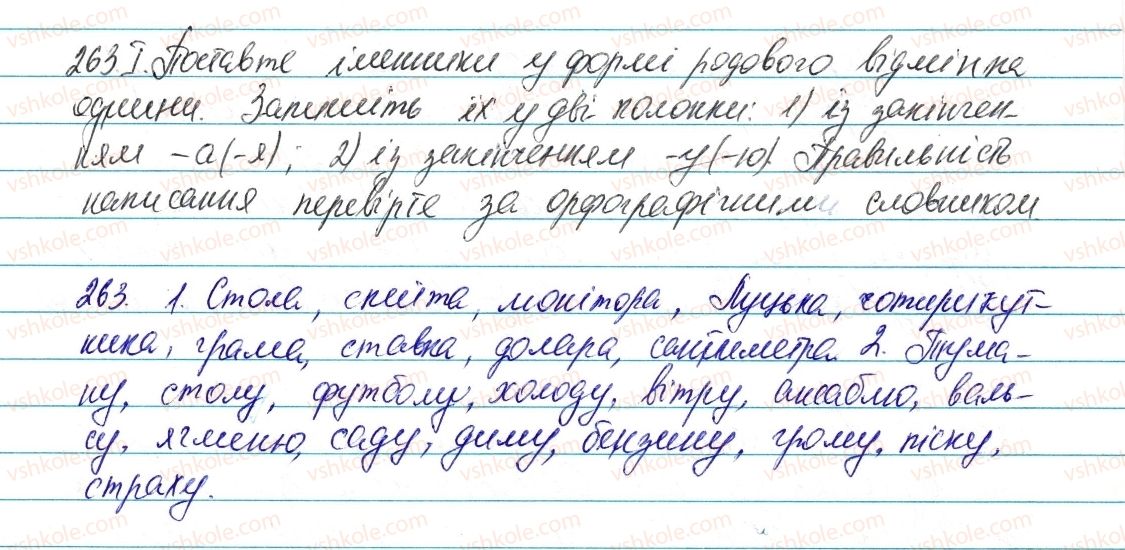 263 I. Поставте іменники у формі родового відмінка
однини. Запишіть їх у дві колонки: 1) із закінчен-
ням -а(-я); 2) із закінченням -у(-ю). Правильність
написання перевірте за орфографічним словником.
263. 1. Стола, монітора, Луцька, чотирикут-
ника, грама, ставка, долара, сантиметра. 2. Тума-
ну, столу, футболу, холоду, вітру, ансаблю, валь-
су, ячменю, саду, диму, бензину, грому, піску,
страху.